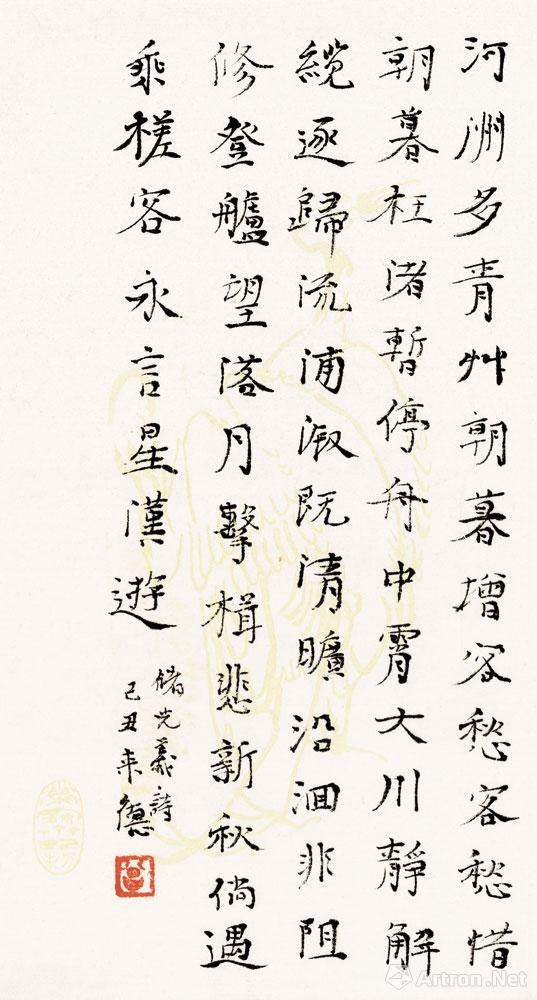 河洲多青艸朝暮增客愁客愁惜
朝暮枉渚暫停舟中霄大川靜解
纜逐歸流浦漵既清曠沿洄非阻
修登艫望落月擊楫悲新秋倘遇
乘槎客永言星漢遊
儲光義詩
己丑来德
Artron.Net